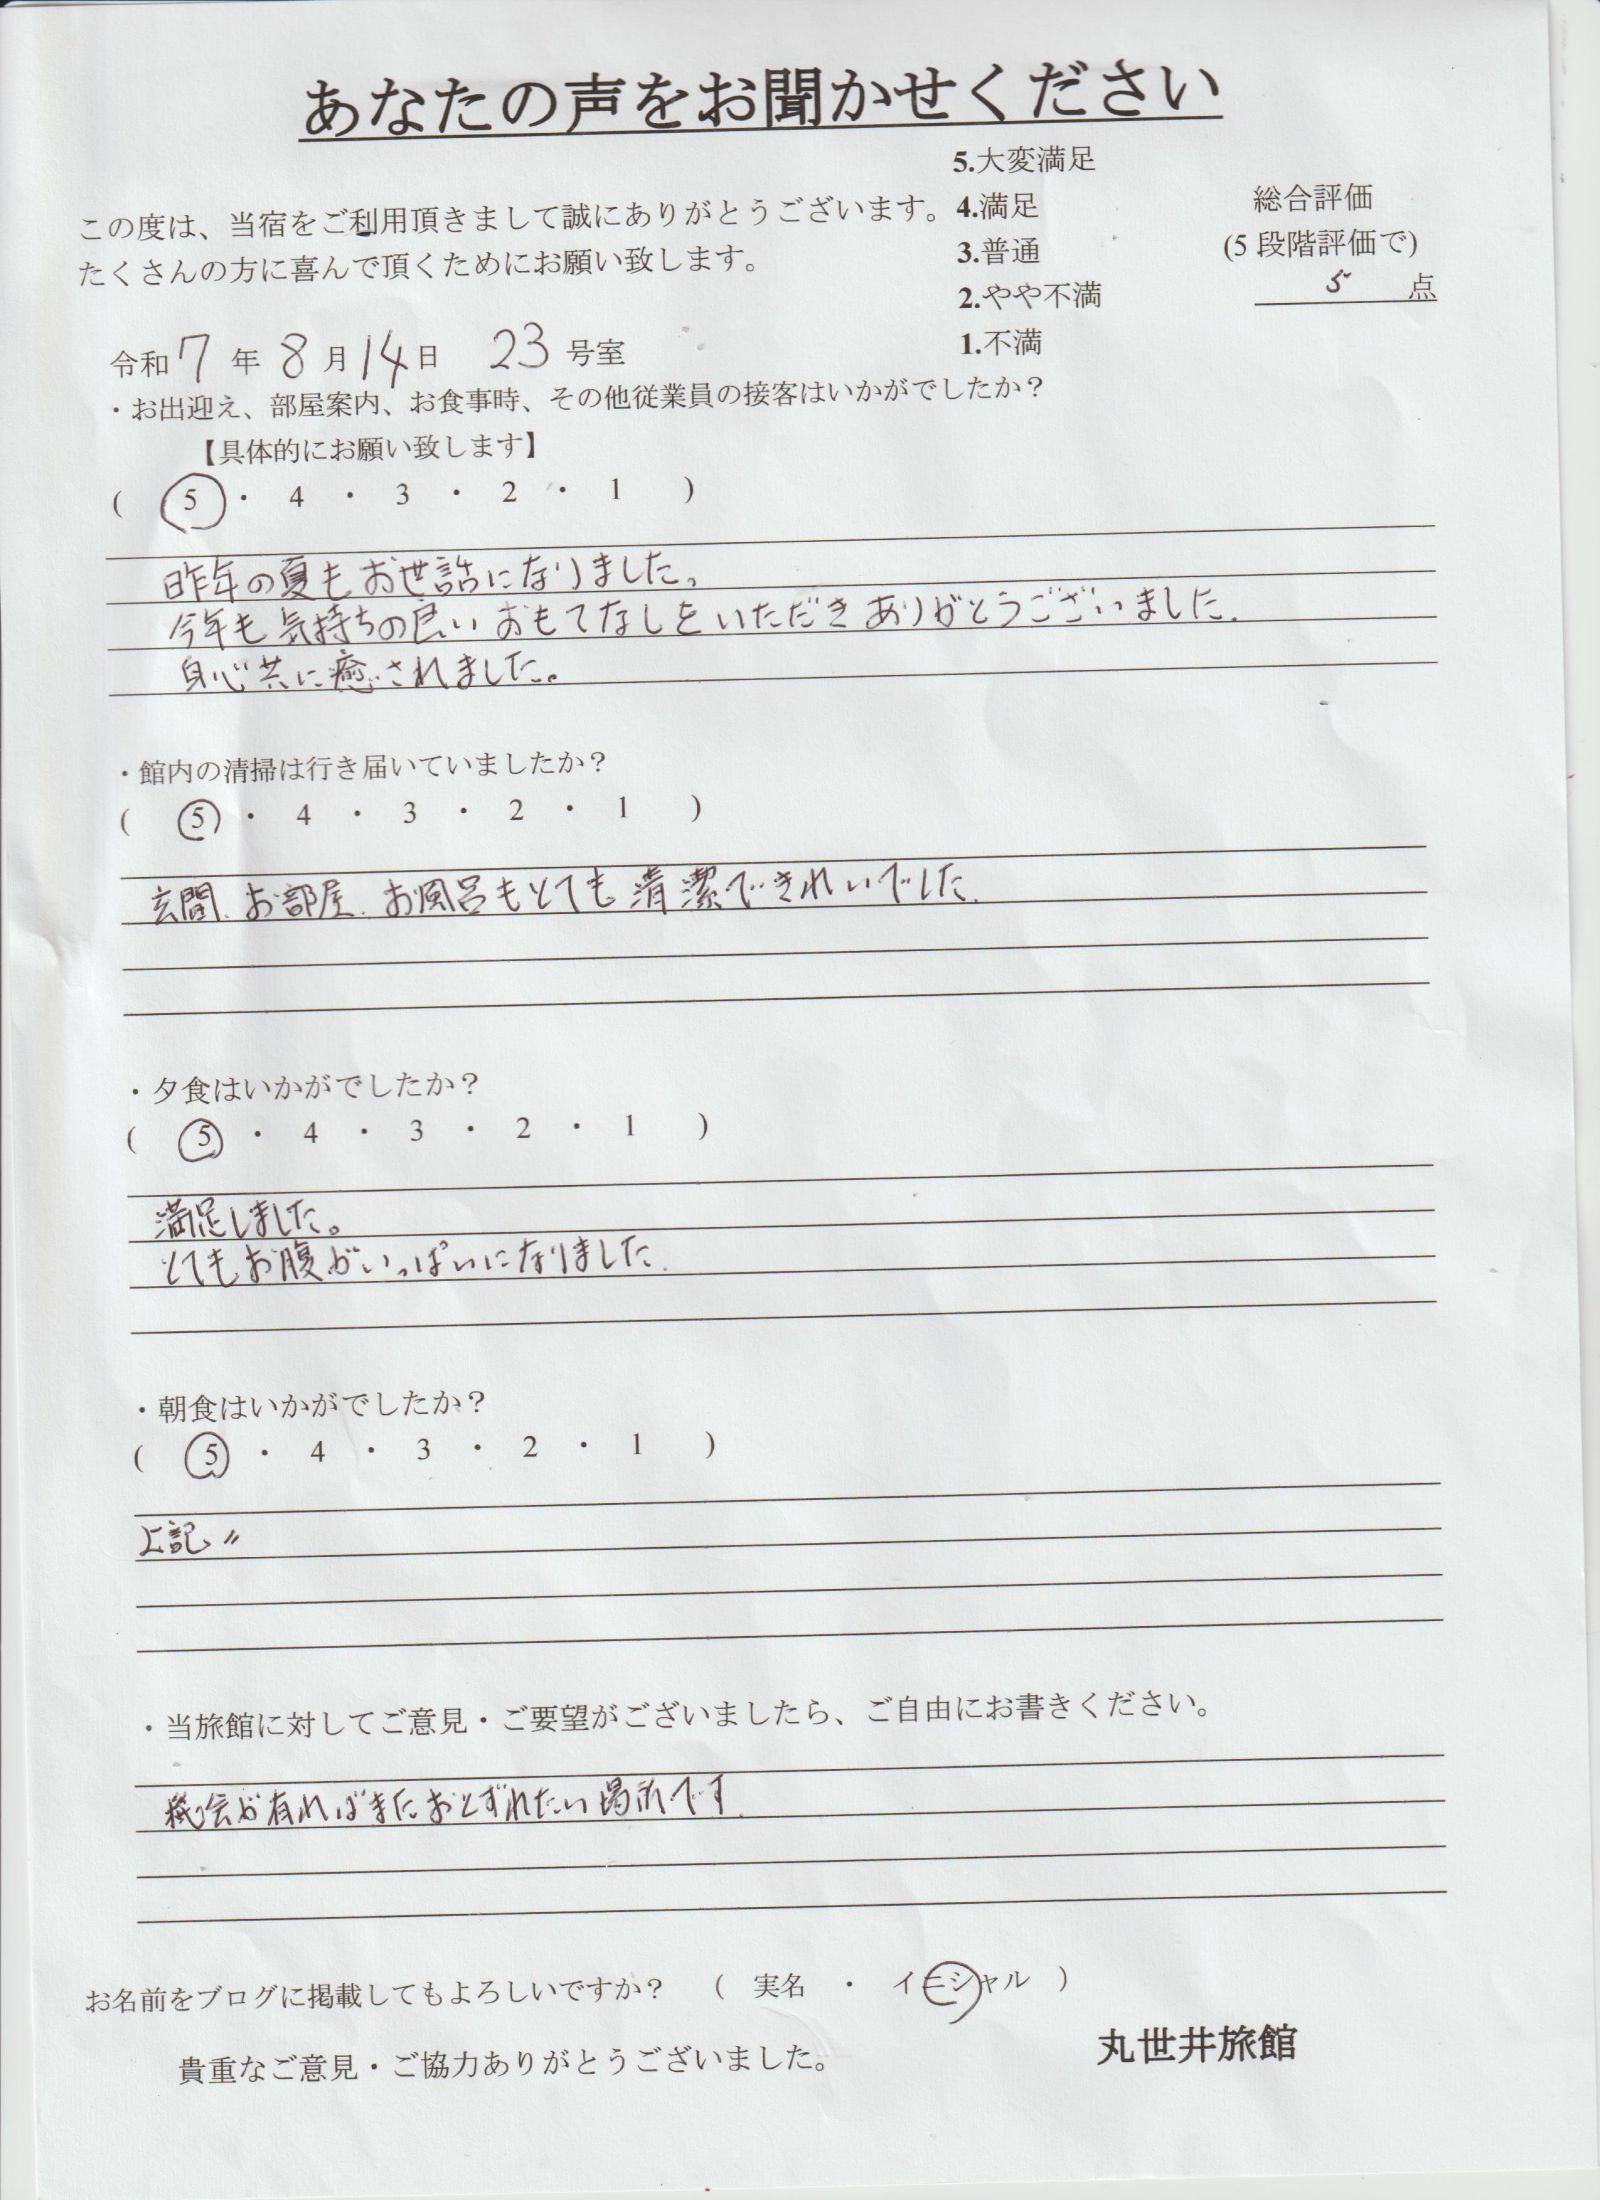 あなたの声をお聞かせください
5.大変満足
この度は、当宿をご利用頂きまして誠にありがとうございます。 4.満足
総合評価
たくさんの方に喜んで頂くためにお願い致します。 3.普通
(5段階評価で)
2.やや不満
5 点
1.不満
令和7年8月14日 23号室
・お出迎え、部屋案内、お食事時、その他従業員の接客はいかがでしたか?
【具体的にお願い致します】
( 5 ・ 4 ・ 3 ・ 2 ・ 1 )
昨年の夏もお世話になりました。
今年も気持ちの良いおもてなしをいただきありがとうございました.
身心共に癒されました。
・館内の清掃は行き届いていましたか?
( 5 ・ 4 ・ 3 ・ 2 ・ 1 )
玄関.お部屋.お風呂もとても清潔できれいでした.
・夕食はいかがでしたか?
( 5 ・ 4 ・ 3 ・ 2 ・ 1 )
満足しました。
とてもお腹がいっぱいになりました.
・朝食はいかがでしたか?
( 5 ・ 4 ・ 3 ・ 2 ・ 1 )
上記〃
・当旅館に対してご意見・ご要望がございましたら、ご自由にお書きください。
機会が有ればまたおとずれたい場所です.
お名前をブログに掲載してもよろしいですか? ( 実名 ・ イニシャル )
丸世井旅館
貴重なご意見・ご協力ありがとうございました。